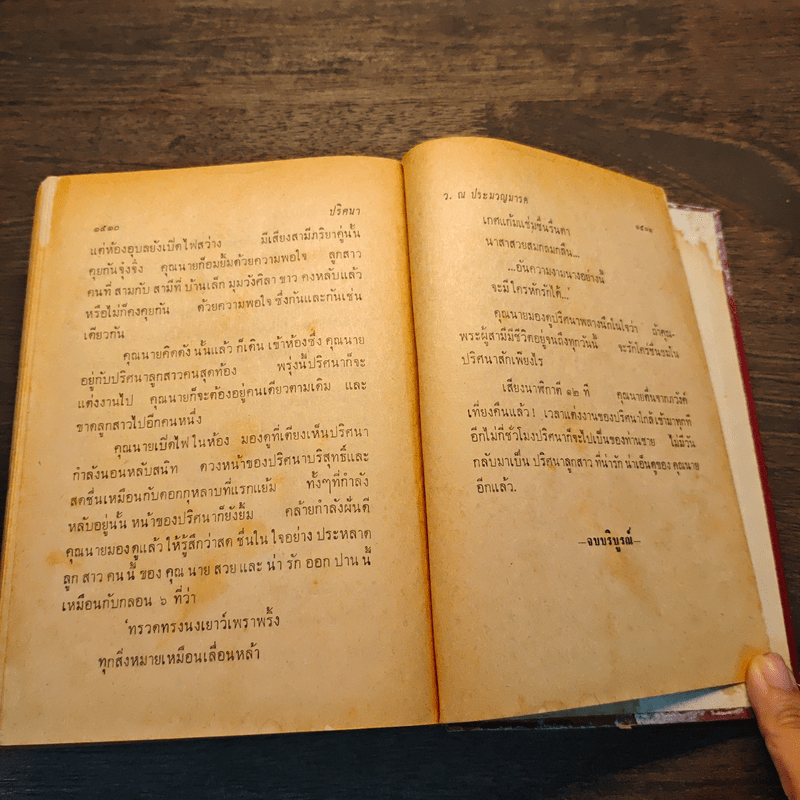 ๑๕๑๐
ปริศนา
แต่ห้องอุบลยังเปิดไฟสว่าง มีเสียงสามีภริยาคู่นั้น
คุยกันจุ๋งจิ๋ง คุณนายก็อมยิ้มด้วยความพอใจ ลูกสาว
คนที่ สามกับ สามีที่ บ้านเล็ก มุมวังศิลา ขาว คงหลับแล้ว
หรือไม่ก็คงคุยกัน ด้วยความพอใจ ซึ่งกันและกันเช่น
เดียวกัน
คุณนายคิดดัง นั้นแล้ว ก็เดิน เข้าห้องซึ่ง คุณนาย
อยู่กับปริศนาลูกสาวคนสุดท้อง พรุ่งนี้ปริศนาก็จะ
แต่งงานไป คุณนายก็จะต้องอยู่คนเดียวตามเดิม และ
ขาดลูกสาวไปอีกคนหนึ่ง
คุณนายเปิดไฟ ในห้อง มองดูที่เตียงเห็นปริศนา
กำลังนอนหลับสนิท ดวงหน้าของปริศนาบริสุทธิ์และ
สดชื่นเหมือนกับดอกกุหลาบที่แรกแย้ม ทั้งๆที่กำลัง
หลับอยู่นั้น หน้าของปริศนาก็ยังยิ้ม คล้ายกำลังฝันดี
คุณนายมองดูแล้ว ให้รู้สึกว่าสด ชื่นใน ใจอย่าง ประหลาด
ลูก สาว คน นี้ ของ คุณ นาย สวย และ น่า รัก ออก ปาน นี้
เหมือนกับกลอน ๖ ที่ว่า
'ทรวดทรงนงเยาว์เพราพริ้ง
ทุกสิ่งหมายเหมือนเลื่อนหล้า
ว. ณ ประมวญมารค
เกศแก้มแช่มชื่นรื่นตา
นาสาสวยสมกลมกลืน...
...อันความงามนางอย่างนี้
จะมี ใครหักรักได้...'
คุณนายมองดูปริศนาพลางนึกในใจว่า ถ้าคุณ-
พระผู้สามีมีชีวิตอยู่จนถึงทุกวันนี้ จะรักใคร่ชื่นชมใน
ปริศนาสักเพียงไร
เสียงนาฬิกาตี ๑๒ ที คุณนายตื่นจากภวังค์
เที่ยงคืนแล้ว! เวลาแต่งงานของปริศนาใกล้ เข้ามาทุกที
อีกไม่กี่ชั่วโมงปริศนาก็จะไปเป็นของท่านชาย ไม่มีวัน
กลับมาเป็น ปริศนาลูกสาว ที่น่ารัก น่าเอ็นดูของ คุณนาย
อีกแล้ว.
—จบบริบูรณ์—